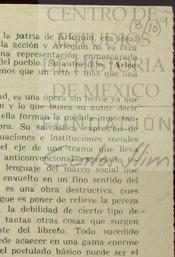 la patria de Arlequín, era
la acción y Arlequín no es otra
una representación enmascarada
del pueblo. Su autre dijo, "Arle-
enos que un reto y más que una
ad, es una ópera sin héroe ya que
n y lo que busca su autor decir
ella forman la fórmula importan-
bra. Su sarcástica expresión de
uaciones e instituciones sociales
el eje de una trama que lleva
anticonvencional expresado ya
lenguaje del marco social que
envuelto en un fino sentido del
es una obra destructiva, pues
gue es poner de relieve la pereza
, la debilidad de cierto tipo de
tantas otras cosas que surgen
te del libreto. Todo sucedido
ede acaecer en una gama enorme
el postulado básico puede ser el
CENTRO DE
DE MEXICO